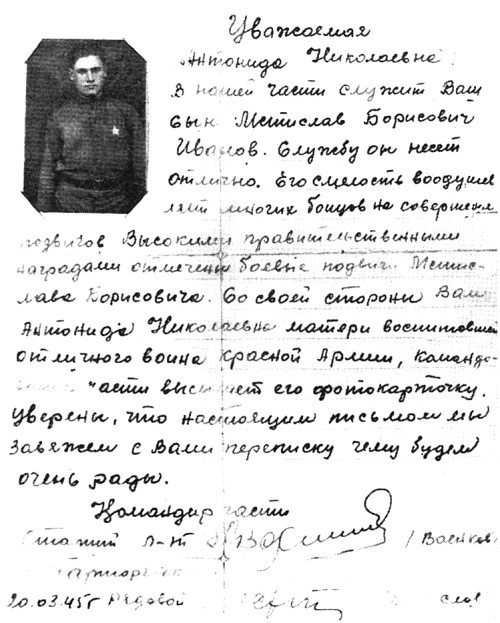 Уважаемая
Антонида Николаевна
В нашей части служит Ваш
сын Мстислав Борисович
Иванов. Службу он несет
отлично. Его смелость воодушев
ляет многих бойцов на совершен
подвигов Высокими правительственными
наградами отмечены боевые подвиги Мстис-
лава Борисовича. Со своей стороны Вам
Антонида Николаевна матери воспитавшей
отличного воина Красной Армии, командо-
части высылает его фотокарточку.
Уверены, что настоящим письмом мы
завяжем с Вами переписку чему будем
очень рады.
Командир части
Старший л-нт
20.03.45г Рядовой